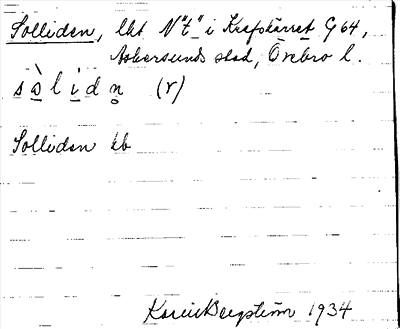 Solliden, lht N"t" i Krefskärret G 64,
Askersunds stad, Örebro l.
sàlidn̥ (r)
Solliden kb
Karin Bergström 1934